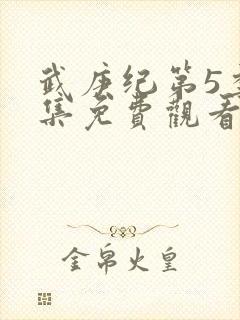 武庚纪第5季
集免費觀看
金帛火皇